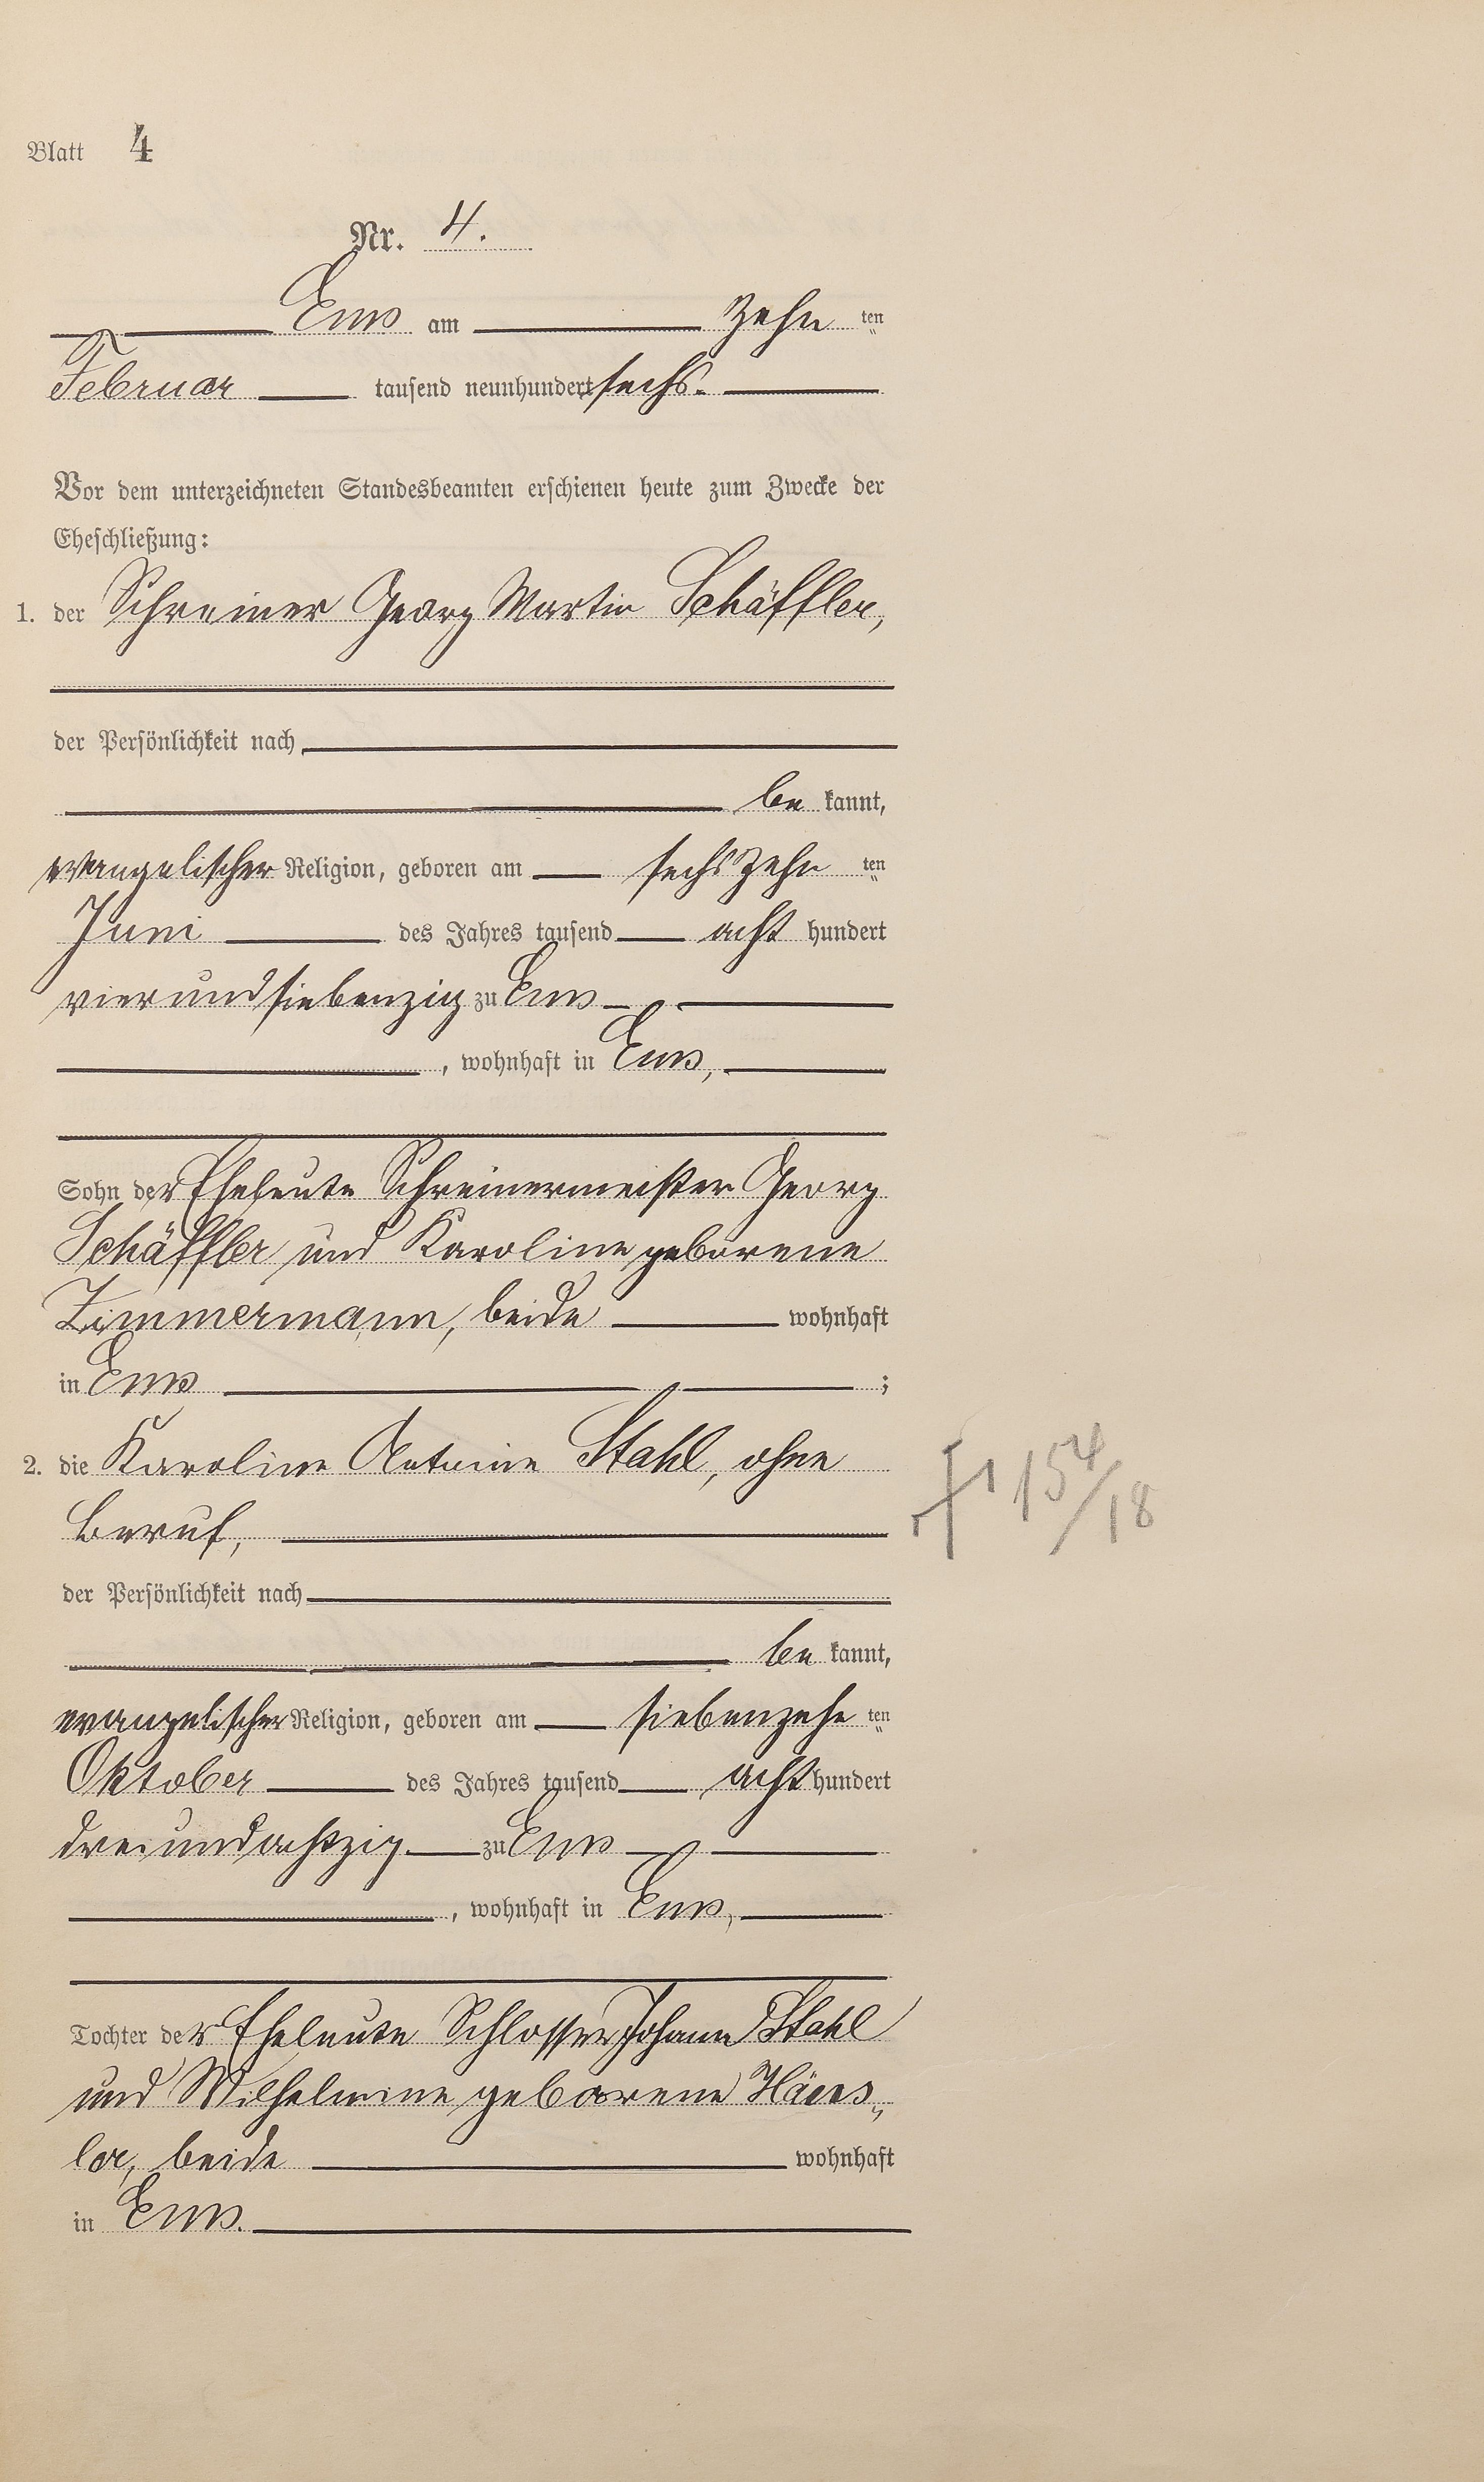 Blatt 4
Nr. 4.
Ems am zehn ten
Februar tausend neunhundert sechs.
Vor dem unterzeichneten Standesbeamten erschienen heute zum Zwecke der
Eheschließung:
1. der Schreiner Georg Martin Schäffler,
der Persönlichkeit nach
be kannt,
evangelischer Religion, geboren am sechszehn ten
Juni des Jahres tausend acht hundert
vierundsiebenzig zu Ems
, wohnhaft in Ems,
Sohn der Eheleute Schreinermeister Georg
Schäffler und Karoline geborene
Zimmermann, beide wohnhaft
in Ems ;
2. die Karoline Antonie Stahl, ohne
Beruf,
der Persönlichkeit nach
be kannt,
evangelischer Religion, geboren am siebenzehn ten
Oktober des Jahres tausend acht hundert
dreiundachtzig zu Ems
, wohnhaft in Ems,
Tochter der Eheleute Schlosser Johann Stahl
und Wilhelmine geborene
beide wohnhaft
in Ems.